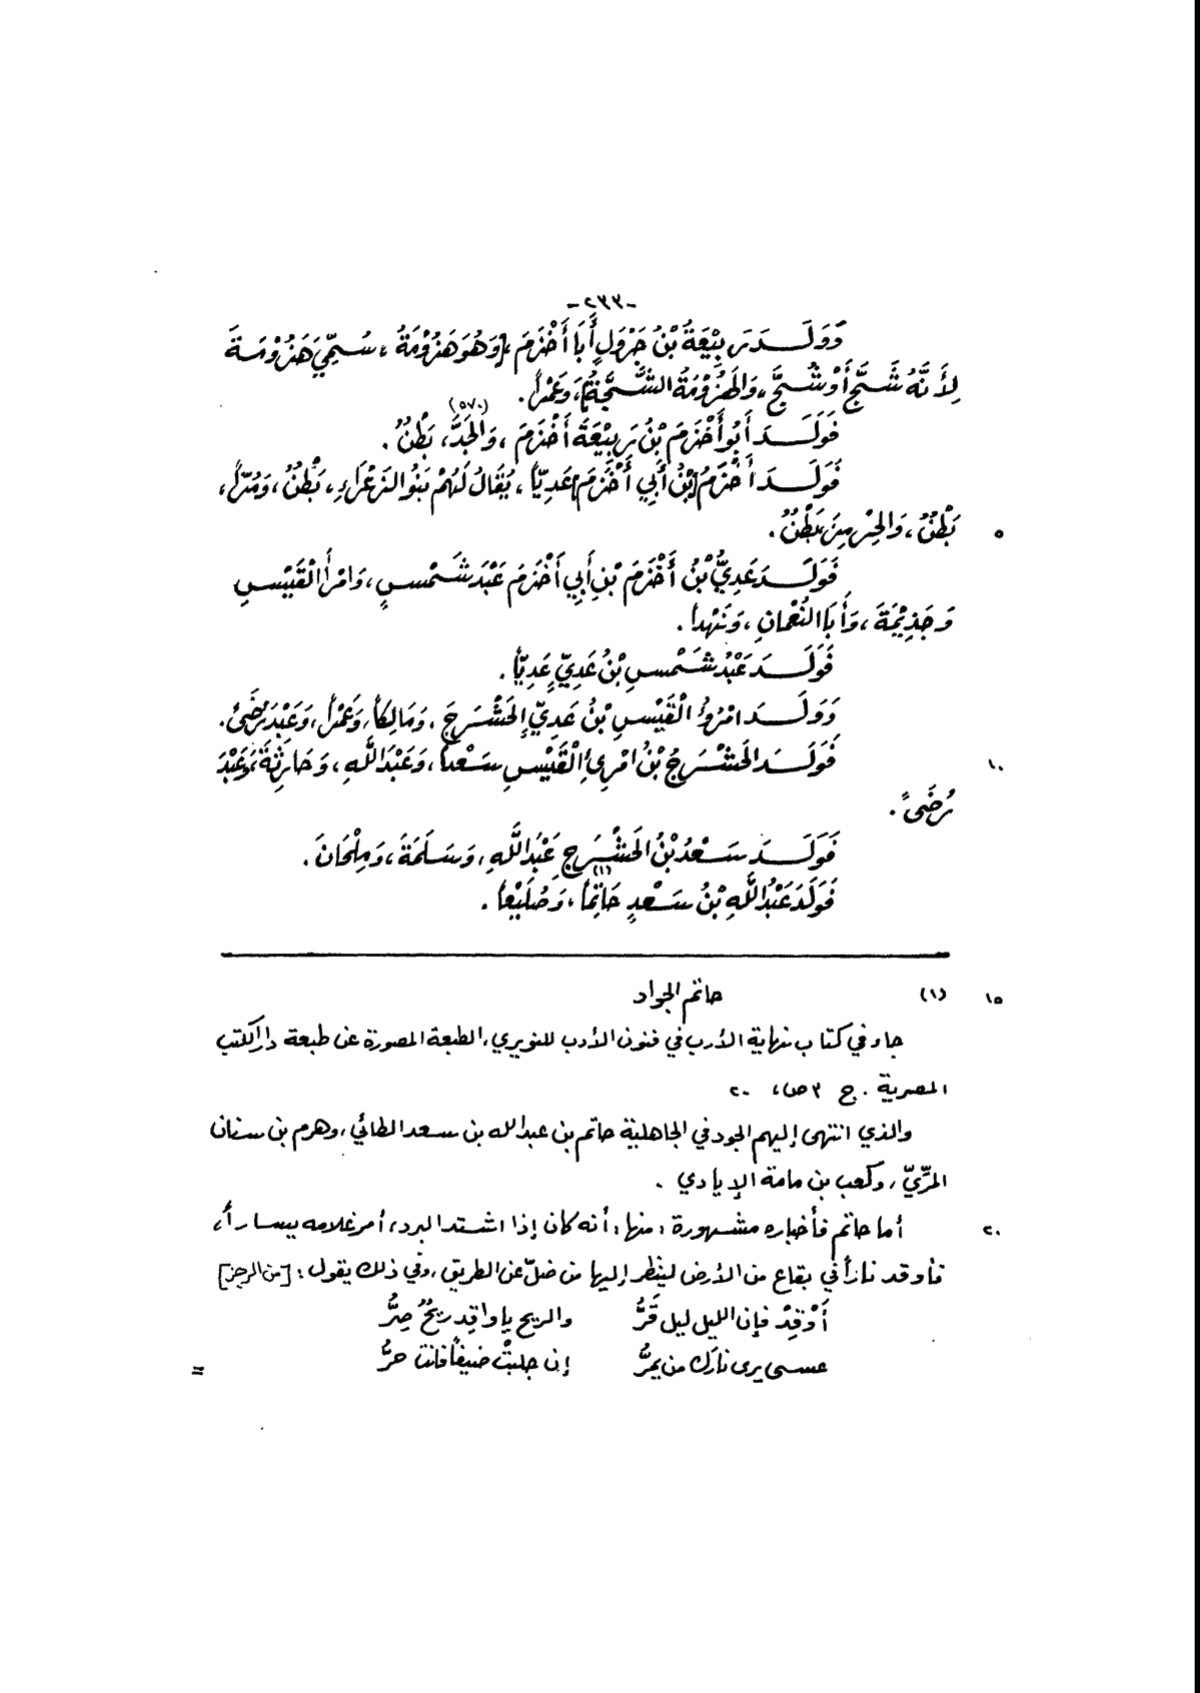 -٢٣٣-
وَوَلَدَ رَبِيْعَةُ بْنُ جَرْوَلٍ أَبَا أَخْزَمَ، [وَهُوَ هَزُوْمَةُ، سُمِّيَ هَزُوْمَةَ
لِأَنَّهُ شَجَّ أَوْ شُجَّ، وَالهَزُوْمَةُ الشَّجَّةُ]، وَعَمْراً.
فَوَلَدَ أَبُو أَخْزَمَ بْنُ رَبِيْعَةَ أَخْزَمَ، (٥٧٠) وَالجَدَّ، بَطْنٌ.
فَوَلَدَ أَخْزَمُ [بْنُ أَبِي أَخْزَمَ] عَدِيّاً، يُقَالُ لَهُمْ بَنُو الزَعْرَاءِ، بَطْنٌ، وَمُرّاً،
٥ بَطْنٌ، وَالحِزْمِرَ بَطْنٌ.
فَوَلَدَ عَدِيُّ بْنُ أَخْزَمَ بْنِ أَبِي أَخْزَمَ عَبْدَ شَمْسٍ، وَامْرَأَ الْقَيْسِ
وَجَذِيْمَةَ، وَأَبَا النُعْمَانِ، وَنَهْداً.
فَوَلَدَ عَبْدُ شَمْسِ بْنُ عَدِيٍّ عَدِيّاً.
وَوَلَدَ امْرُؤُ الْقَيْسِ بْنُ عَدِيٍّ الحَشْرَجَ، وَمَالِكاً، وَعَمْراً، وَعَبْدَ رُضَىً.
١٠ فَوَلَدَ الحَشْرَجُ بْنُ امْرِئِ الْقَيْسِ سَعْداً، وَعَبْدَ اللَّهِ، وَحَارِثَةَ، وَعَبْدَ
رُضَىً.
فَوَلَدَ سَعْدُ بْنُ الحَشْرَجِ عَبْدَ اللَّهِ، وَسَلَمَةَ، وَمِلْحَانَ.
فَوَلَدَ عَبْدُ اللَّهِ بْنُ سَعْدٍ حَاتِماً(١)، وَصُلَيْعاً.
١٥ (١) حاتم الجواد
جاء في كتاب نهاية الأرب في فنون الأدب للنويري، الطبعة المصورة عن طبعة دار الكتب
المصرية. ج ٣ ص، ٢٠
والذي انتهى إليهم الجود في الجاهلية حاتم بن عبدالله بن سعد الطائي، وهرم بن سنان
المرّيّ، وكعب بن مامة الإيادي.
٢٠ أما حاتم فأخباره مشهورة، منها: أنه كان إذا اشتد البرد، أمر غلامه يساراً،
فأوقد ناراً في بقاع من الأرض لينظر إليها من ضلّ عن الطريق، وفي ذلك يقول: [من الرجز]
أَوْقِدْ فإن الليل ليل قَرُّ والريح يا واقِد ريحٌ صِرُّ
عسى يرى نارَك من يمرُّ إن جلبتْ ضيفاً فانت حرُّ
=